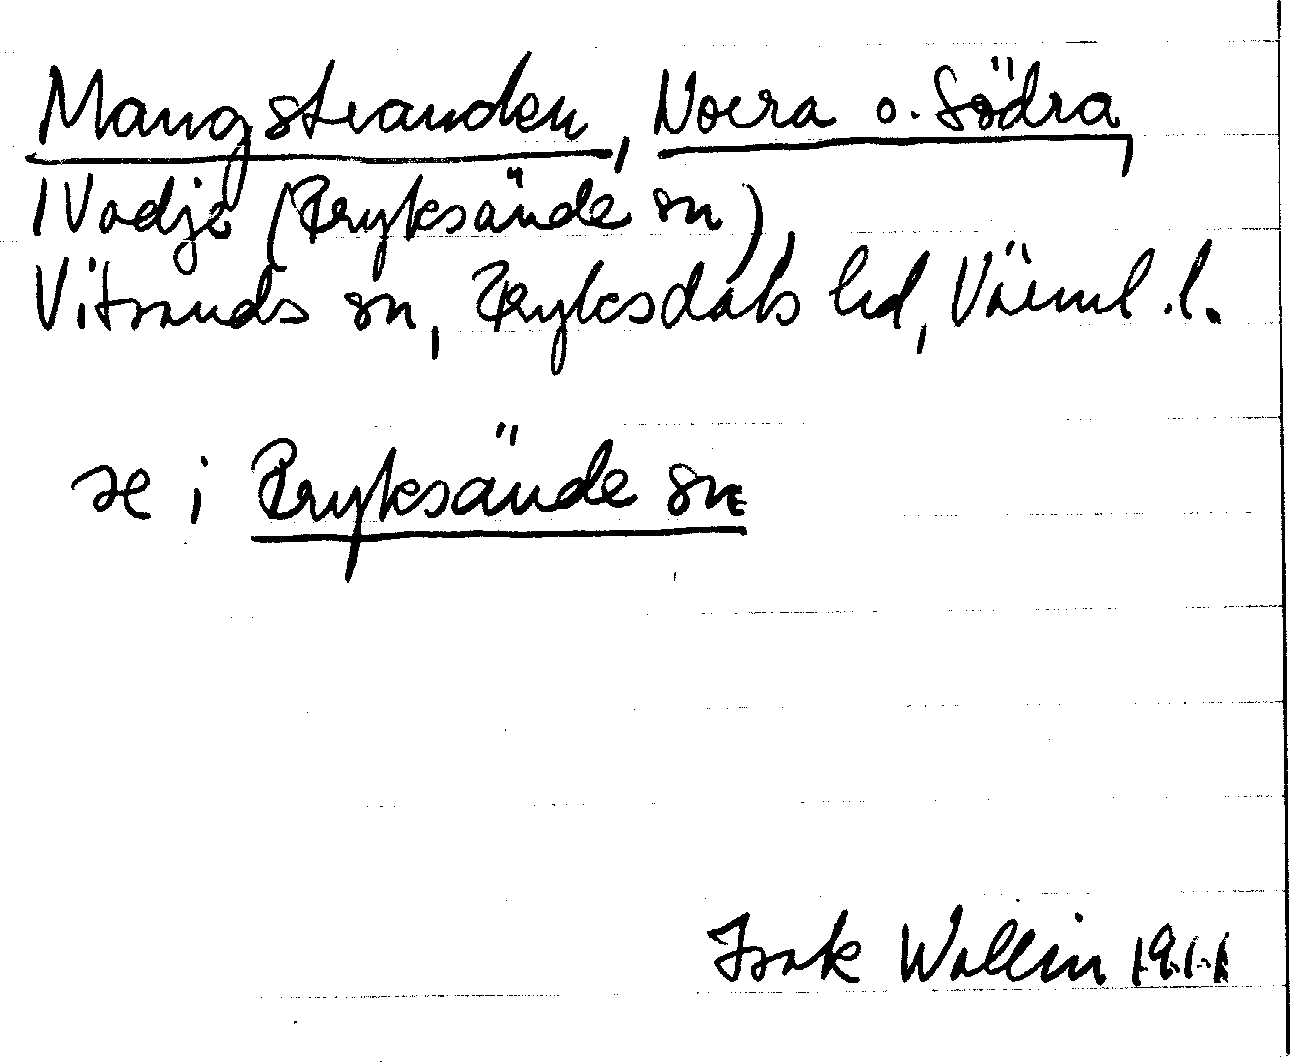 Mangstranden, Norra o. Södra,
i Vadje (Fryksände sn),
Vitsands sn, Fryksdals hd, Värml. l.
se i Fryksände sn
Isak Wallin 1911